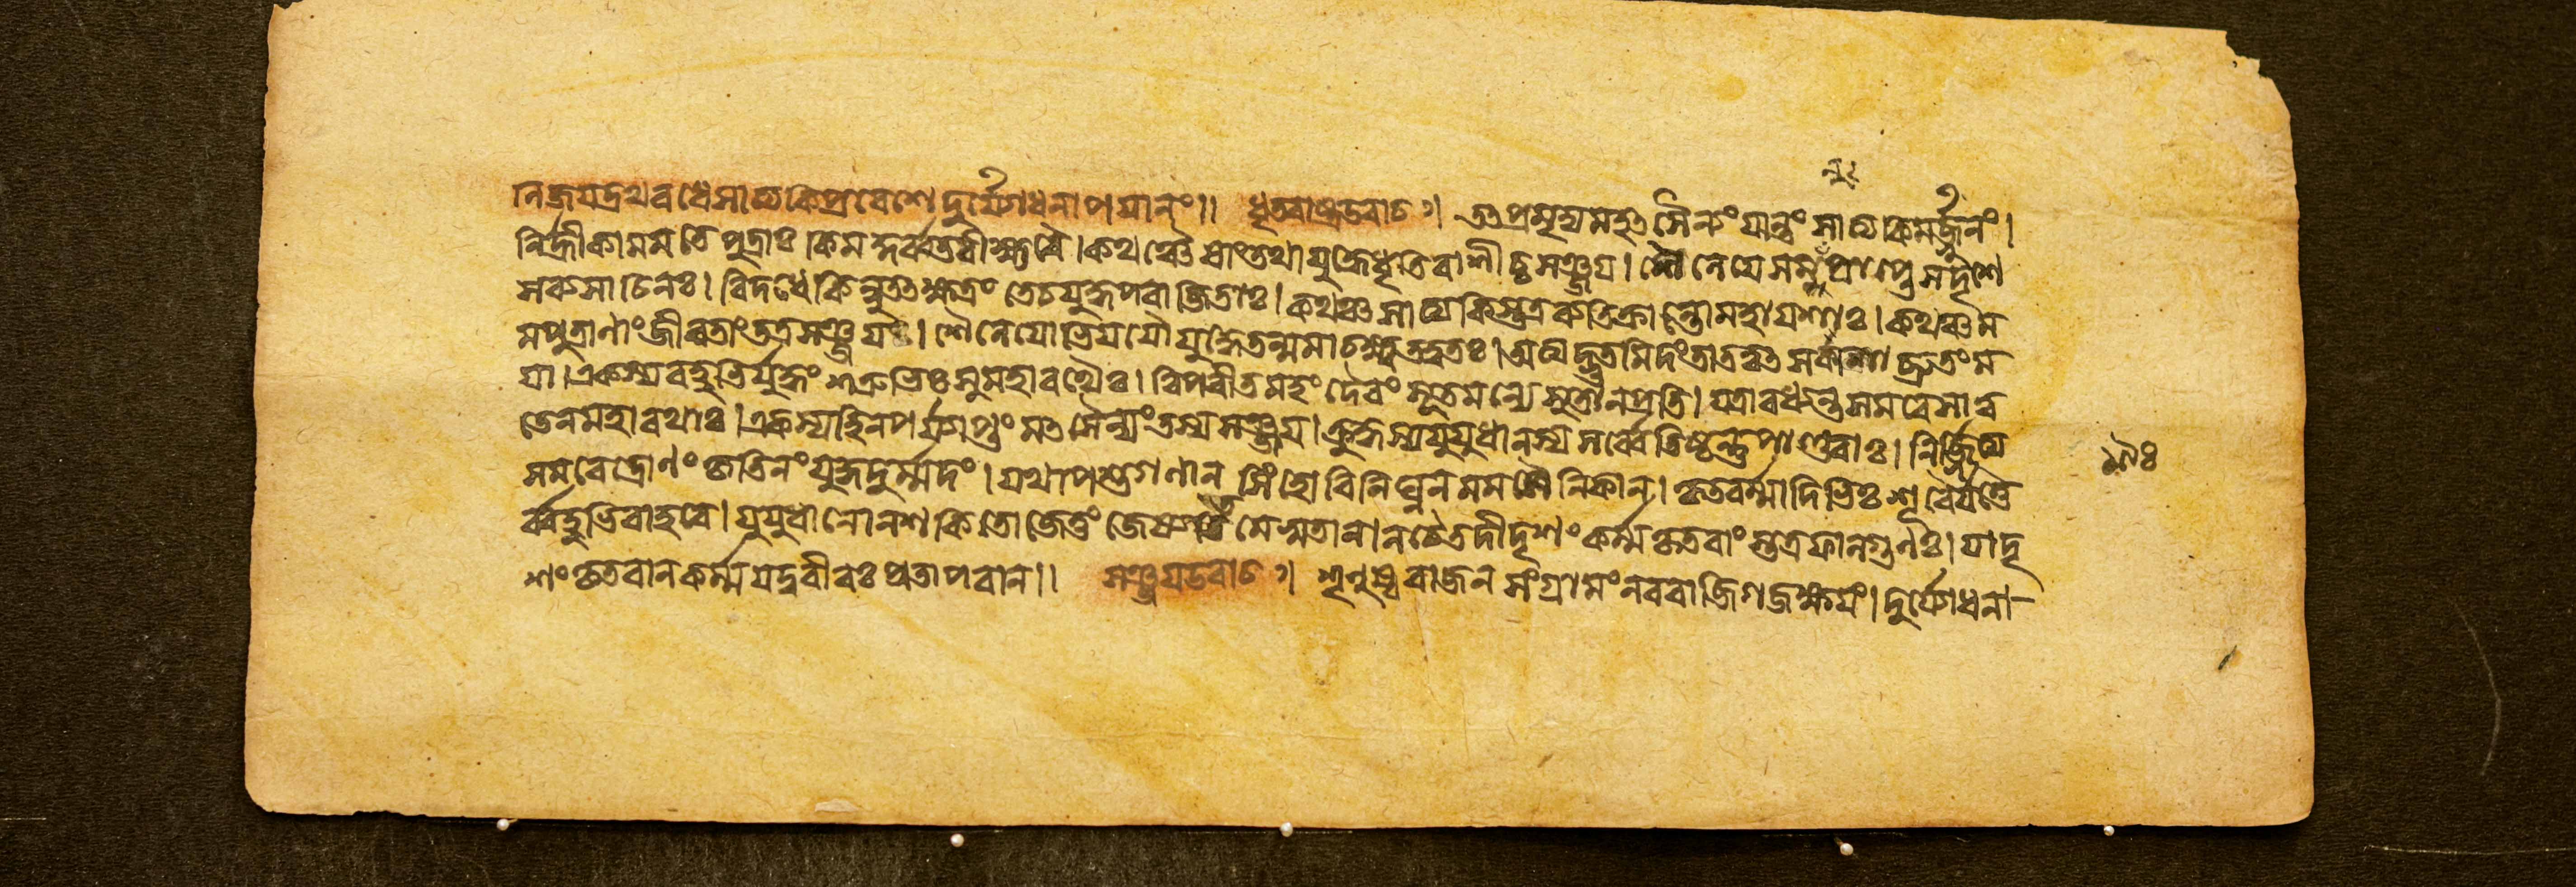 নিজয়দ্রথবধেসাত্যকিপ্রবেশেদুর্যোধনাপযানং।। ধৃতরাষ্ট্রউবাচ ।। তৎপ্রমৃদ্যমহৎসৈন্যংযান্তংসাত্যকিমর্জুনং।
নির্হ্রীকামমতেপুত্রাঃ।কিমকুর্ব্বতবীক্ষ্যবৈ।কথঞ্চৈষাংতথাযুদ্ধেধৃতিরাশীচ্চসঞ্জয়।শৈনেয়েসমনুপ্রাপ্তেসদৃশে
সব্যসাচিনঃ।বিদধেকিন্নুতৎক্ষত্রংতেচযুদ্ধপরাজিতাঃ।কথঞ্চসাত্যকিস্তত্রব্যতিক্রান্তোমহাযশাঃ।কথঞ্চম
মপুত্রাণাংজীবতাংতত্রসঞ্জয়ঃ।শৈনেয়োভিযযৌযুদ্ধেতন্মমাচক্ষ্বতত্ত্বতঃ।অত্যদ্ভুতমিদংতাতত্বৎসকাশাচ্ছ্রুতংম
যা।একস্যবহুভির্যুদ্ধংশত্রুভিঃসুমহারথৈঃ।বিপরীতমহংদৈবংনূনমন্যেসুতান্প্রতি।যত্রাবধ্যন্তসমরেসাত্ব
তেনমহারথাঃ।একস্যহিনপর্যাপ্তংমৎসৈন্যংতস্যসঞ্জয়।ক্রুদ্ধস্যযুযুধানস্যসর্ব্বেতিষ্ঠন্তুপাণ্ডবাঃ।নির্জিত্য
সমরেদ্রোণংকৃতিনংযুদ্ধদুর্ম্মদং।যথাপশুগণানসিংহোবিনিঘ্ননমমসৈনিকান।কৃতবর্ম্মাদিভিঃশূরৈর্যত্তৈ
র্ব্বহুভিরাহবে।যুযুধানোনশকিতোজেতুং মেসুতান।নচৈতদীদৃশংকর্ম্মকৃতবাংস্তত্রফাল্গুনঃ।যাদৃ
শংকৃতবানকর্ম্মযদুবীরঃপ্রতাপবান।। সঞ্জয়উবাচ ।। শৃণুষ্বরাজন সংগ্রামংনরবাজিগজক্ষয়ং।দুর্যোধনা